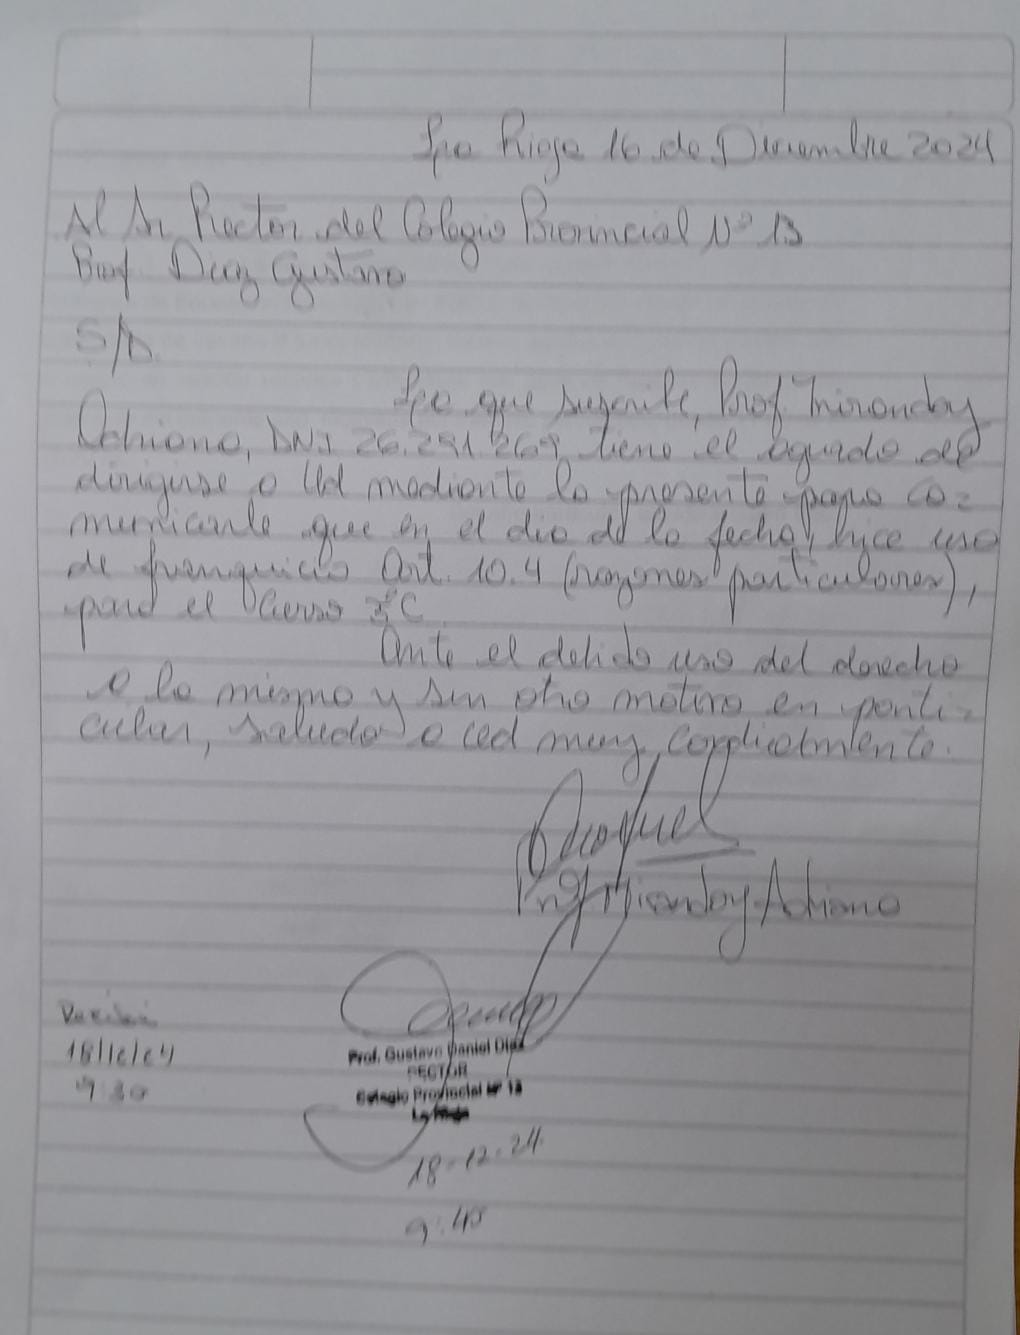 La Rioja 16 de Diciembre 2024
Al Sr Rector del Colegio Provincial N° 13
Prof Diaz Gustavo
S/D.
La que suscribe, Prof. Mironday
Adriana, DNI 26.291.269, tiene el agrado de
dirigirse a Ud mediante la presente para co-
municarle que en el dia de la fecha, hice uso
de franquicia Art. 10.4 (razones particulares),
para el Curso C
Ante el debido uso del derecho
a la mismo y sin otro motivo en parti-
cular, saludo a Ud muy cordialmente.
Prof Adriana
Recibí
18/12/24
9:30
Prof. Gustavo Daniel Diaz
RECTOR
Colegio Provincial N° 13
La Rioja
18-12-24
9:40